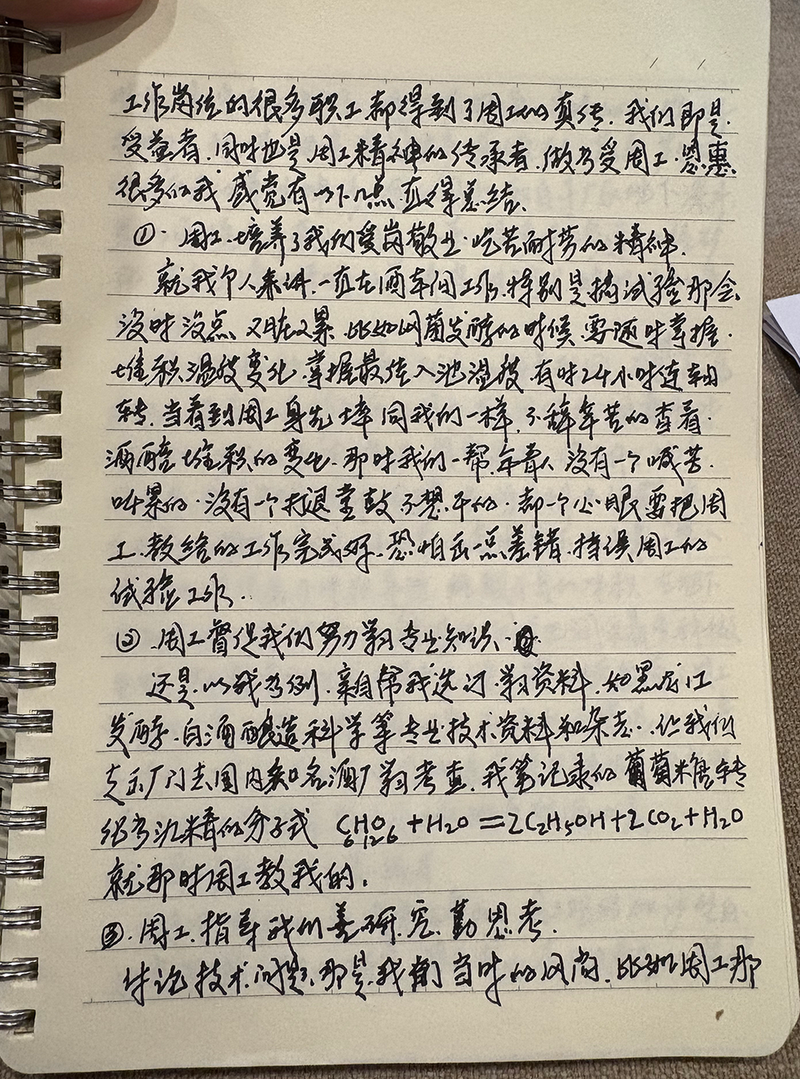 工作岗位的很多职工都得到了周工的真传.我们即是.
受益者.同时也是周工精神的传承者.做为受周工.恩惠
很多的我感觉有以下几点值得总结.
①.周工.培养了我们爱岗敬业.吃苦耐劳的精神.
就我个人来讲.一直在酒车间工作.特别是搞试验那会
没时没点又脏又累.比如网菌发酵的时候.要随时掌握.
堆积温度变化.掌握最佳入池温度.有时24小时连轴
转.当看到周工身先士率同我们一样.不辞辛苦的查看.
酒醅堆积的变化.那时我们一帮.年青人没有一个喊苦.
叫累的.没有一个打退堂鼓不想干的.都一个心眼要把周
工.教给的工作完成好.恐怕出一点差错.持误周工的
试验工作.
②.周工督促我们努力学习专业知识.
还是.以我为例.亲自帮我选订.学习资料.如黑龙江
发酵.白酒酿造科学等专业技术资料和杂志..让我们
走出厂门去国内知名酒厂学习考查.我笔记录的葡萄糖转
化为酒精的分子式 C6H12O6+H2O=2C2H5OH+2CO2+H2O
就那时周工教我的.
③.周工.指导我们善研.究.勤思考.
讨论技术.问题.那是.我们当时的风尚.比如周工那